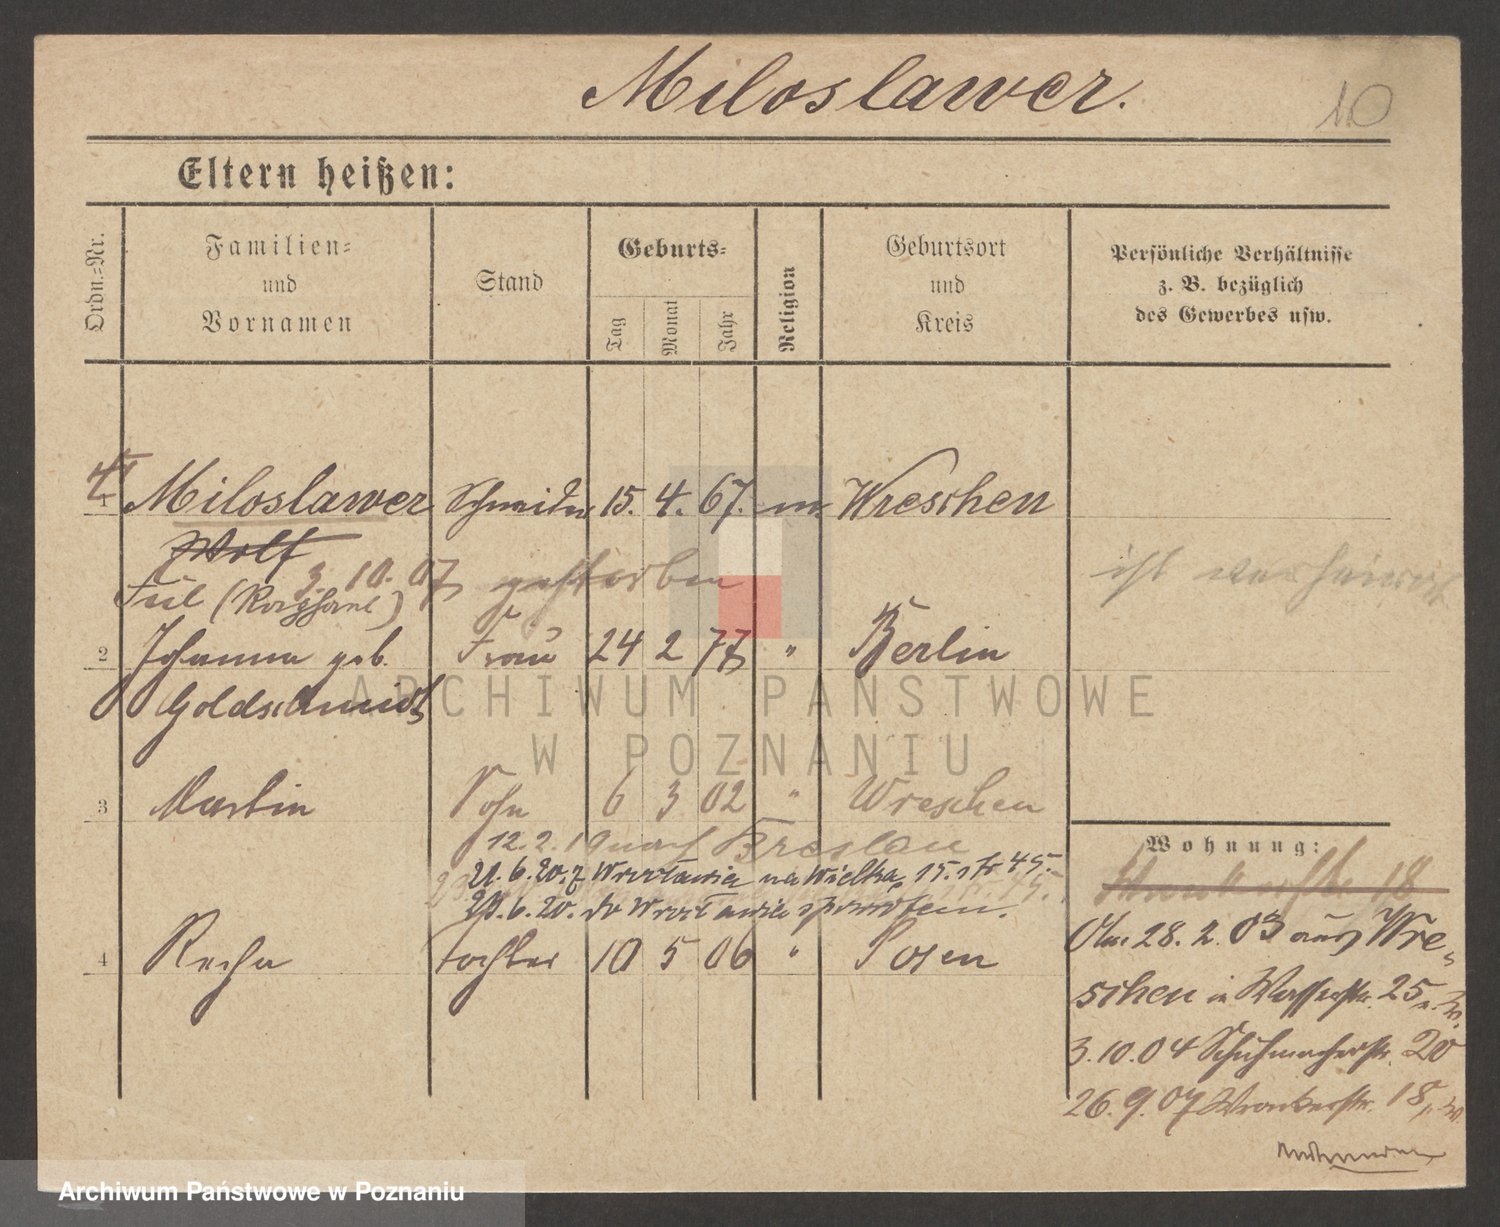 Miloslawer.
10
Eltern heißen:
Ordn.=Nr.
Familien=
und
Vornamen
Stand
Geburts=
Tag
Monat
Jahr
Religion
Geburtsort
und
Kreis
Persönliche Verhältnisse
z. B. bezüglich
des Gewerbes usw.
1 Miloslawer Schneider 15. 4. 67. m. Wreschen
Wolf
3. 10. 07 gestorben
ist verheiratet
2 Johanna geb. Frau 24 2 77 " Berlin
Goldschmidt
3 Martin Sohn 6 3 02 " Wreschen
12.2.19 nach Breslau
21.6.20. z Wrocławia na Wielka 15. 
29.6.20. do Wrocławia
4 Recha Tochter 10 5 06 " Posen
Wohnung:
18
28. 2. 03 aus Wre=
schen in Wasserstr. 25
3.10.04 Schuhmacherstr. 20
26.9.07 Wronkerstr. 18
ARCHIWUM PAŃSTWOWE
W POZNANIU
Archiwum Państwowe w Poznaniu